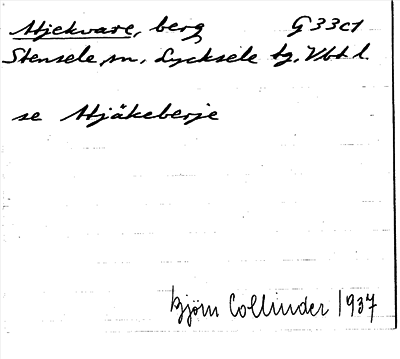 Stjekware, berg G 33 c1
Stensele sn, Lycksele tg, Vbt l.
se Stjäkeberje
Björn Collinder 1937